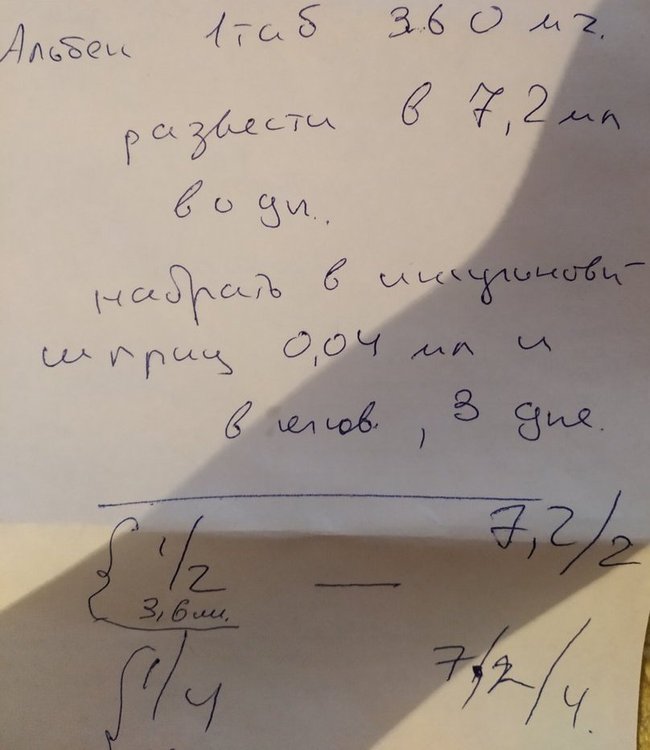 Альбен 1таб 360 мг.
развести в 7,2 мл
воды.
набрать в инсулиновый
шприц 0,04 мл и
в клюв, 3 дня.
1/2 — 7,2/2
3,6 мл.
1/4 7,2/4.